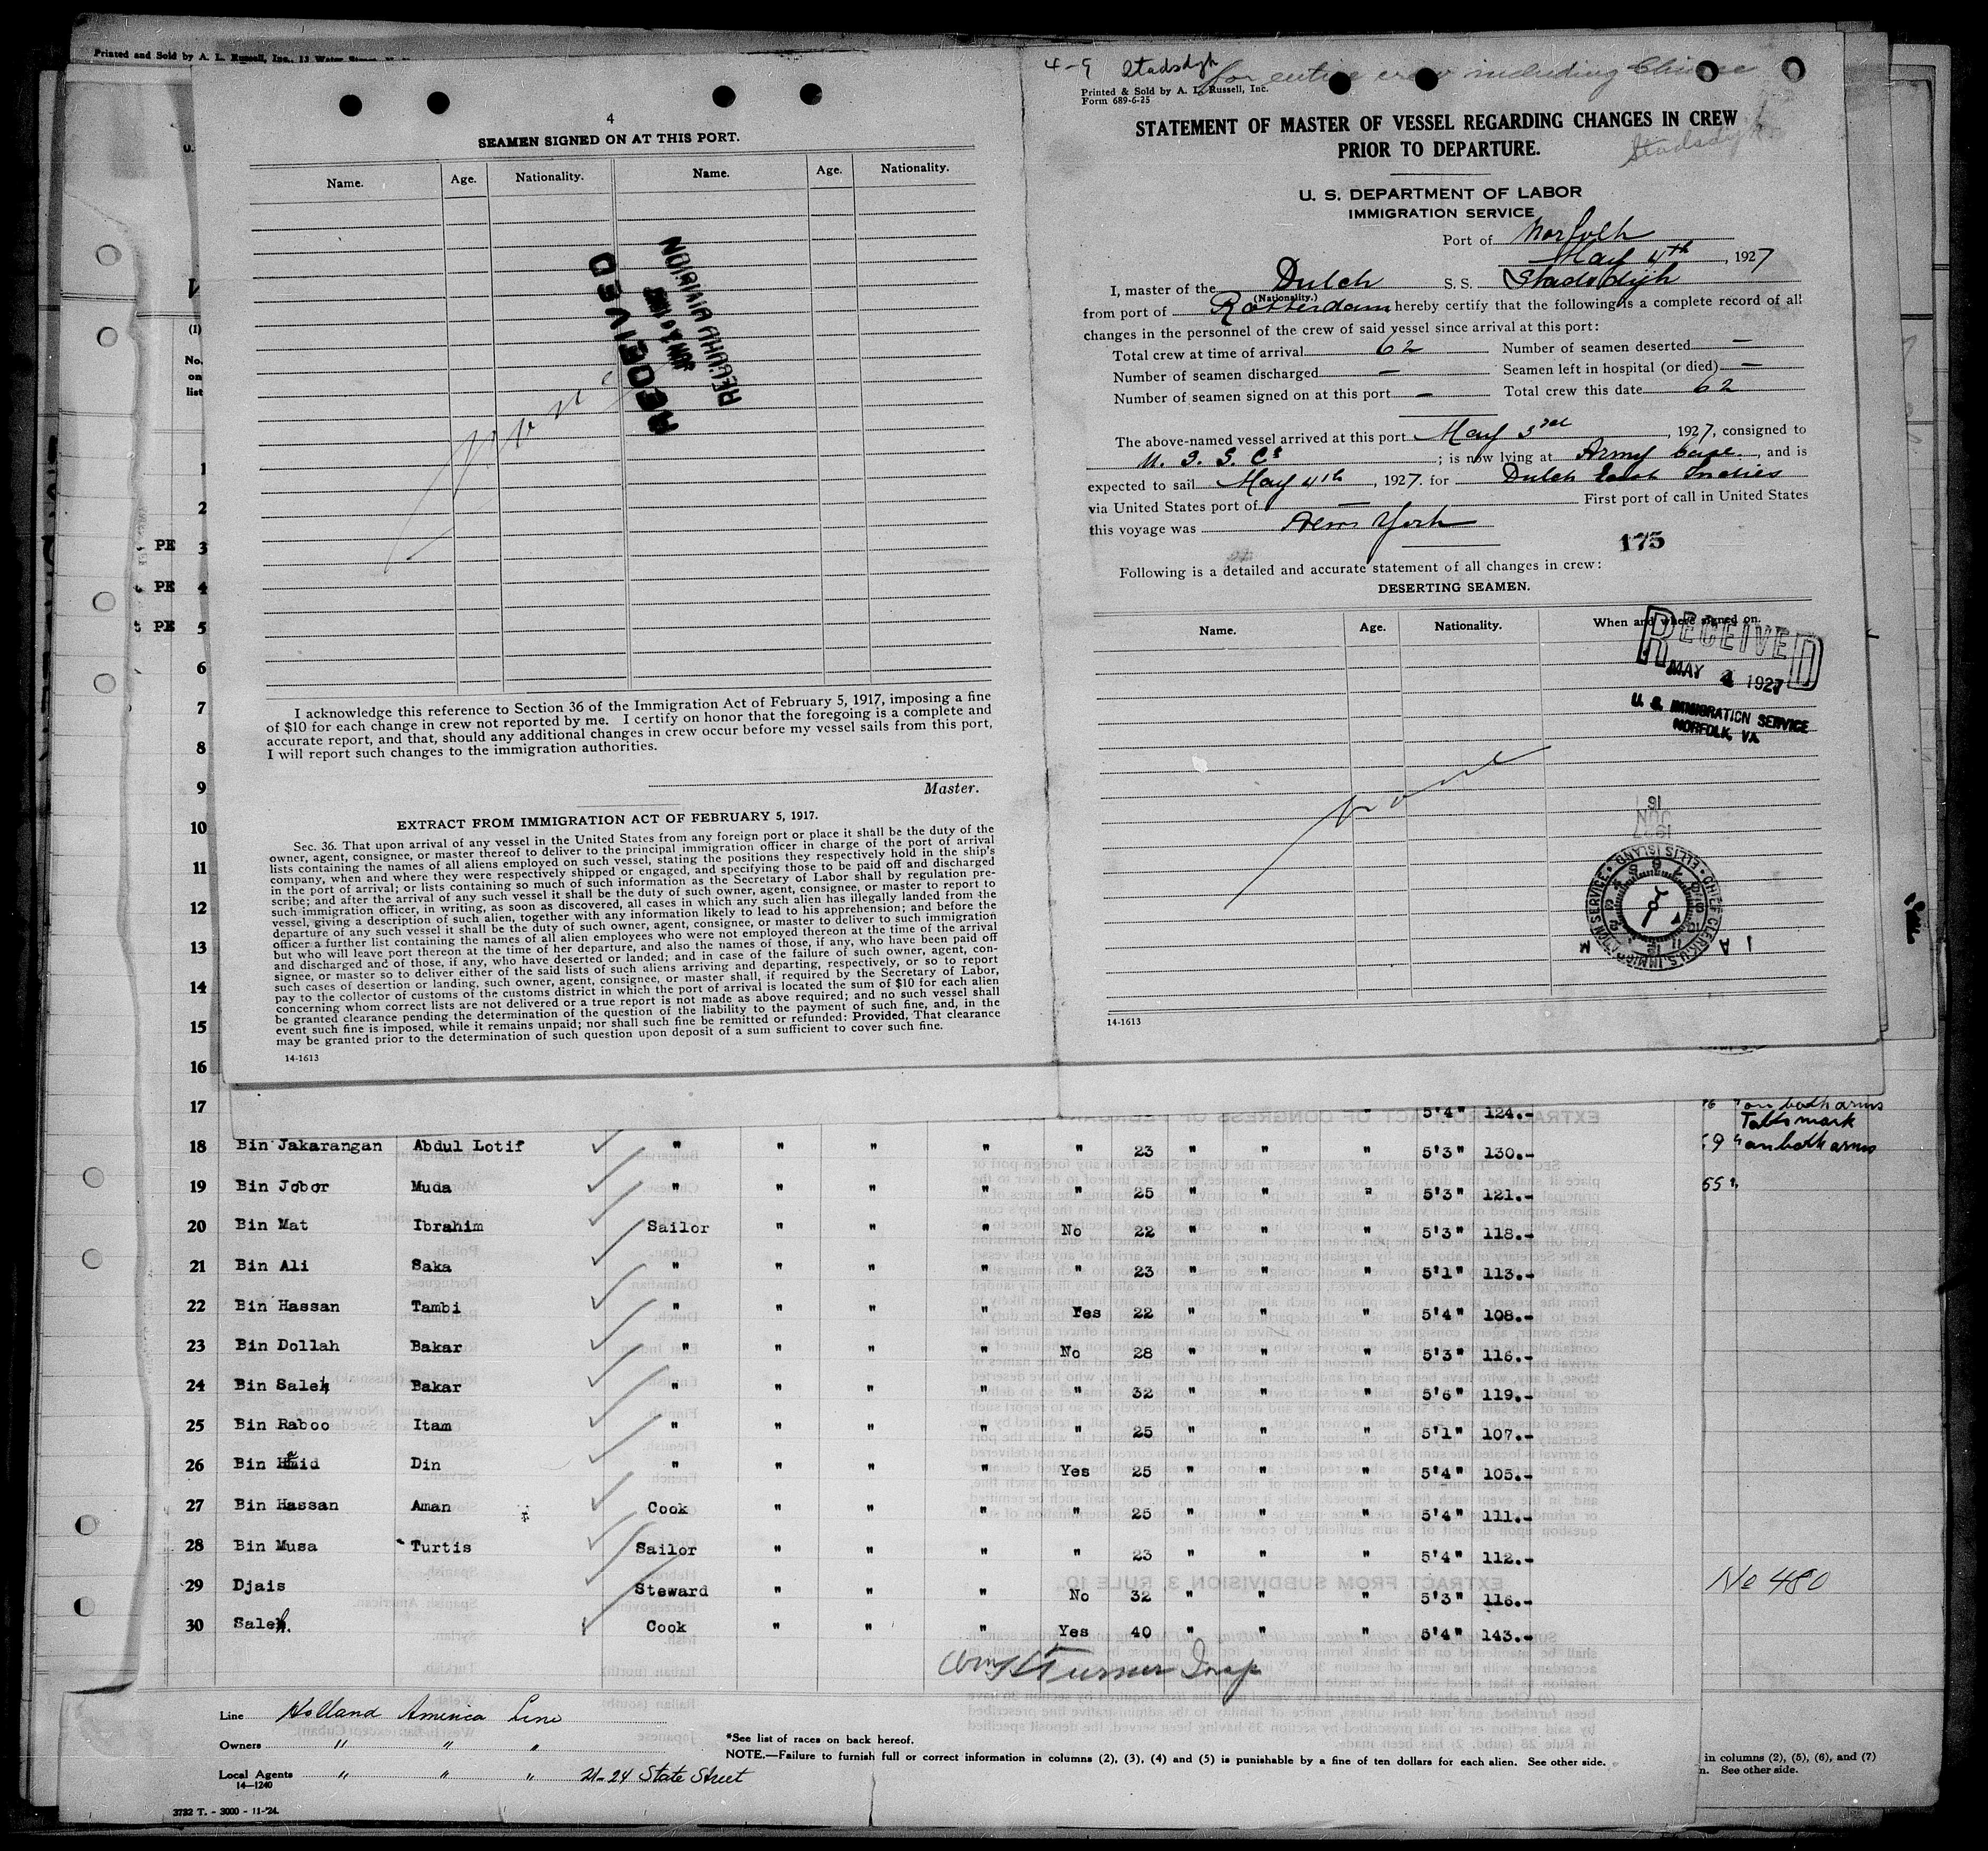 Printed and Sold by A. L. Russell, Inc., 13 Water
4
SEAMEN SIGNED ON AT THIS PORT.
Name. Age. Nationality. Name. Age. Nationality.
RECEIVED
RECORD DIVISION
None
I acknowledge this reference to Section 36 of the Immigration Act of February 5, 1917, imposing a fine
of $10 for each change in crew not reported by me. I certify on honor that the foregoing is a complete and
accurate report, and that, should any additional changes in crew occur before my vessel sails from this port,
I will report such changes to the immigration authorities.
Master.
EXTRACT FROM IMMIGRATION ACT OF FEBRUARY 5, 1917.
Sec. 36. That upon arrival of any vessel in the United States from any foreign port or place it shall be the duty of the
owner, agent, consignee, or master thereof to deliver to the principal immigration officer in charge of the port of arrival
lists containing the names of all aliens employed on such vessel, stating the positions they respectively hold in the ship's
company, when and where they were respectively shipped or engaged, and specifying those to be paid off and discharged
in the port of arrival; or lists containing so much of such information as the Secretary of Labor shall by regulation pre-
scribe; and after the arrival of any such vessel it shall be the duty of such owner, agent, consignee, or master to report to
such immigration officer, in writing, as soon as discovered, all cases in which any such alien has illegally landed from the
vessel, giving a description of such alien, together with any information likely to lead to his apprehension; and before the
departure of any such vessel it shall be the duty of such owner, agent, consignee, or master to deliver to such immigration
officer a further list containing the names of all alien employees who were not employed thereon at the time of the arrival
but who will leave port thereon at the time of her departure, and also the names of those, if any, who have been paid off
and discharged and of those, if any, who have deserted or landed; and in case of the failure of such owner, agent, con-
signee, or master so to deliver either of the said lists of such aliens arriving and departing, respectively, or so to report
such cases of desertion or landing, such owner, agent, consignee, or master shall, if required by the Secretary of Labor,
pay to the collector of customs of the customs district in which the port of arrival is located the sum of $10 for each alien
concerning whom correct lists are not delivered or a true report is not made as above required; and no such vessel shall
be granted clearance pending the determination of the question of the liability to the payment of such fine, and, in the
event such fine is imposed, while it remains unpaid; nor shall such fine be remitted or refunded: Provided, That clearance
may be granted prior to the determination of such question upon deposit of a sum sufficient to cover such fine.
14-1613
4-9 Stadsdijk
for entire crew including Chinese
Printed & Sold by A. L. Russell, Inc.
Form 689-6-25
STATEMENT OF MASTER OF VESSEL REGARDING CHANGES IN CREW
PRIOR TO DEPARTURE.
Stadsdijk
U. S. DEPARTMENT OF LABOR
IMMIGRATION SERVICE
Port of Norfolk
May 4th, 1927
I, master of the Dutch S. S. Stadsdijk
(Nationality.)
from port of Rotterdam hereby certify that the following is a complete record of all
changes in the personnel of the crew of said vessel since arrival at this port:
Total crew at time of arrival 62 Number of seamen deserted —
Number of seamen discharged — Seamen left in hospital (or died) —
Number of seamen signed on at this port — Total crew this date 62
The above-named vessel arrived at this port May 3rd, 1927, consigned to
; is now lying at Army base, and is
expected to sail May 4th, 1927. for Dutch East Indies
via United States port of — First port of call in United States
this voyage was New York
175
Following is a detailed and accurate statement of all changes in crew:
DESERTING SEAMEN.
Name. Age. Nationality. When and where signed on.
RECEIVED
MAY 4 1927
U. S. IMMIGRATION SERVICE
NORFOLK, VA.
None
16
JUN
1927
CHIEF CLERK U.S. IMMIGRATION SERVICE ELLIS ISLAND
14-1613
(1)
No.
on
list
1
2
PE 3
PE 4
PE 5
6
7
8
9
10
11
12
13
14
15
16
17 " 5'4" 124.- on both arms
18 Bin Jakarangan Abdul Lotif " " " " " 23 " " " 5'3" 130.- on both arms
19 Bin Jobor Muda " " " " " 25 " " " 5'3" 121.-
20 Bin Mat Ibrahim Sailor " " " No 22 " " " 5'3" 118.-
21 Bin Ali Saka " " " " " 23 " " " 5'1" 113.-
22 Bin Hassan Tambi " " " " Yes 22 " " " 5'4" 108.-
23 Bin Dollah Bakar " " " " No 28 " " " 5'3" 116.-
24 Bin Saleh Bakar " " " " " 32 " " " 5'6" 119.-
25 Bin Raboo Itam " " " " " 25 " " " 5'1" 107.-
26 Bin Haid Din " " " " Yes 25 " " " 5'4" 105.-
27 Bin Hassan Aman Cook " " " " 25 " " " 5'4" 111.-
28 Bin Musa Turtis Sailor " " " " 23 " " " 5'4" 112.-
29 Djais Steward " " " No 32 " " " 5'3" 116.-
30 Saleh. Cook " " " Yes 40 " " " 5'4" 143.-
No 480
Turner Insp
Line Holland America Line
Owners " " "
Local Agents " " " 21-24 State Street
14—1240
*See list of races on back hereof.
NOTE.—Failure to furnish full or correct information in columns (2), (3), (4) and (5) is punishable by a fine of ten dollars for each alien. See other side.
in columns (2), (5), (6), and (7)
n. See other side.
3732 T. - 3000 - 11-'24.